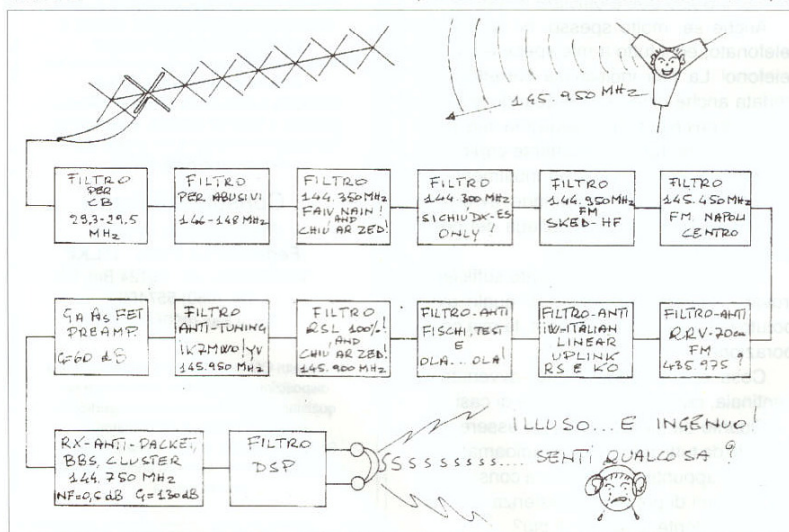 145.950 MHz
FILTRO
PER
CB
29,3-29,5
MHz
FILTRO
PER ABUSIVI
146-148 MHz
FILTRO
144.350 MHz
FAIV, NAIN!
AND
CHIU AR ZED!
FILTRO
144.300 MHz
SICHIU DX-ES
ONLY!
FILTRO
144.950 MHz
FM
SKED-HF
FILTRO
145.450 MHz
FM. NAPOLI
CENTRO
GaAs FET
PREAMP.
G=60 dB
FILTRO
ANTI-TUNING
145.950 MHz
FILTRO
RSL 100%!
AND
CHIU AR ZED!
145.900 MHz
FILTRO-ANTI
FISCHI, TEST
E
OLA... OLA!
FILTRO-ANTI
IW-ITALIAN
LINEAR
UPLINK
RS E KO
FILTRO-ANTI
RRV-70cm
FM
435.975?
RX-ANTI-PACKET,
BBS, CLUSTER
144.750 MHz
NF=0,6 dB G=130dB
FILTRO
DSP
ILLUSO... E INGENUO!
SSSSSSSSS.... SENTI QUALCOSA?